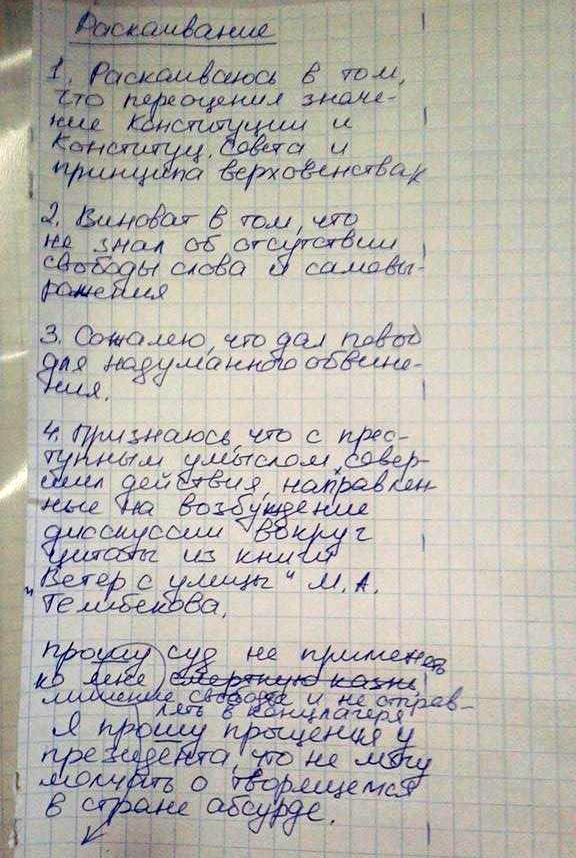 Раскаивание
1. Раскаиваюсь в том,
что переоценил значе-
ние Конституции и
Конституц. совета и
принципа верховенства
2. Виноват в том, что
не знал об отсутствии
свободы слова и самовы-
ражения
3. Сожалею, что дал повод
для надуманного обвине-
ния.
4. Признаюсь, что с прес-
тупным умыслом совер-
шил действия, направлен
ные на возбуждение
дисскуссии вокруг
цитаты из книги
"Ветер с улицы" М.А.
прошу суд не применять
ко мне смертную казнь,
лишение свободы и не отправ-
лять в концлагеря
Я прошу прощения у
президента, что не могу
молчать о творящемся
в стране абсурде.